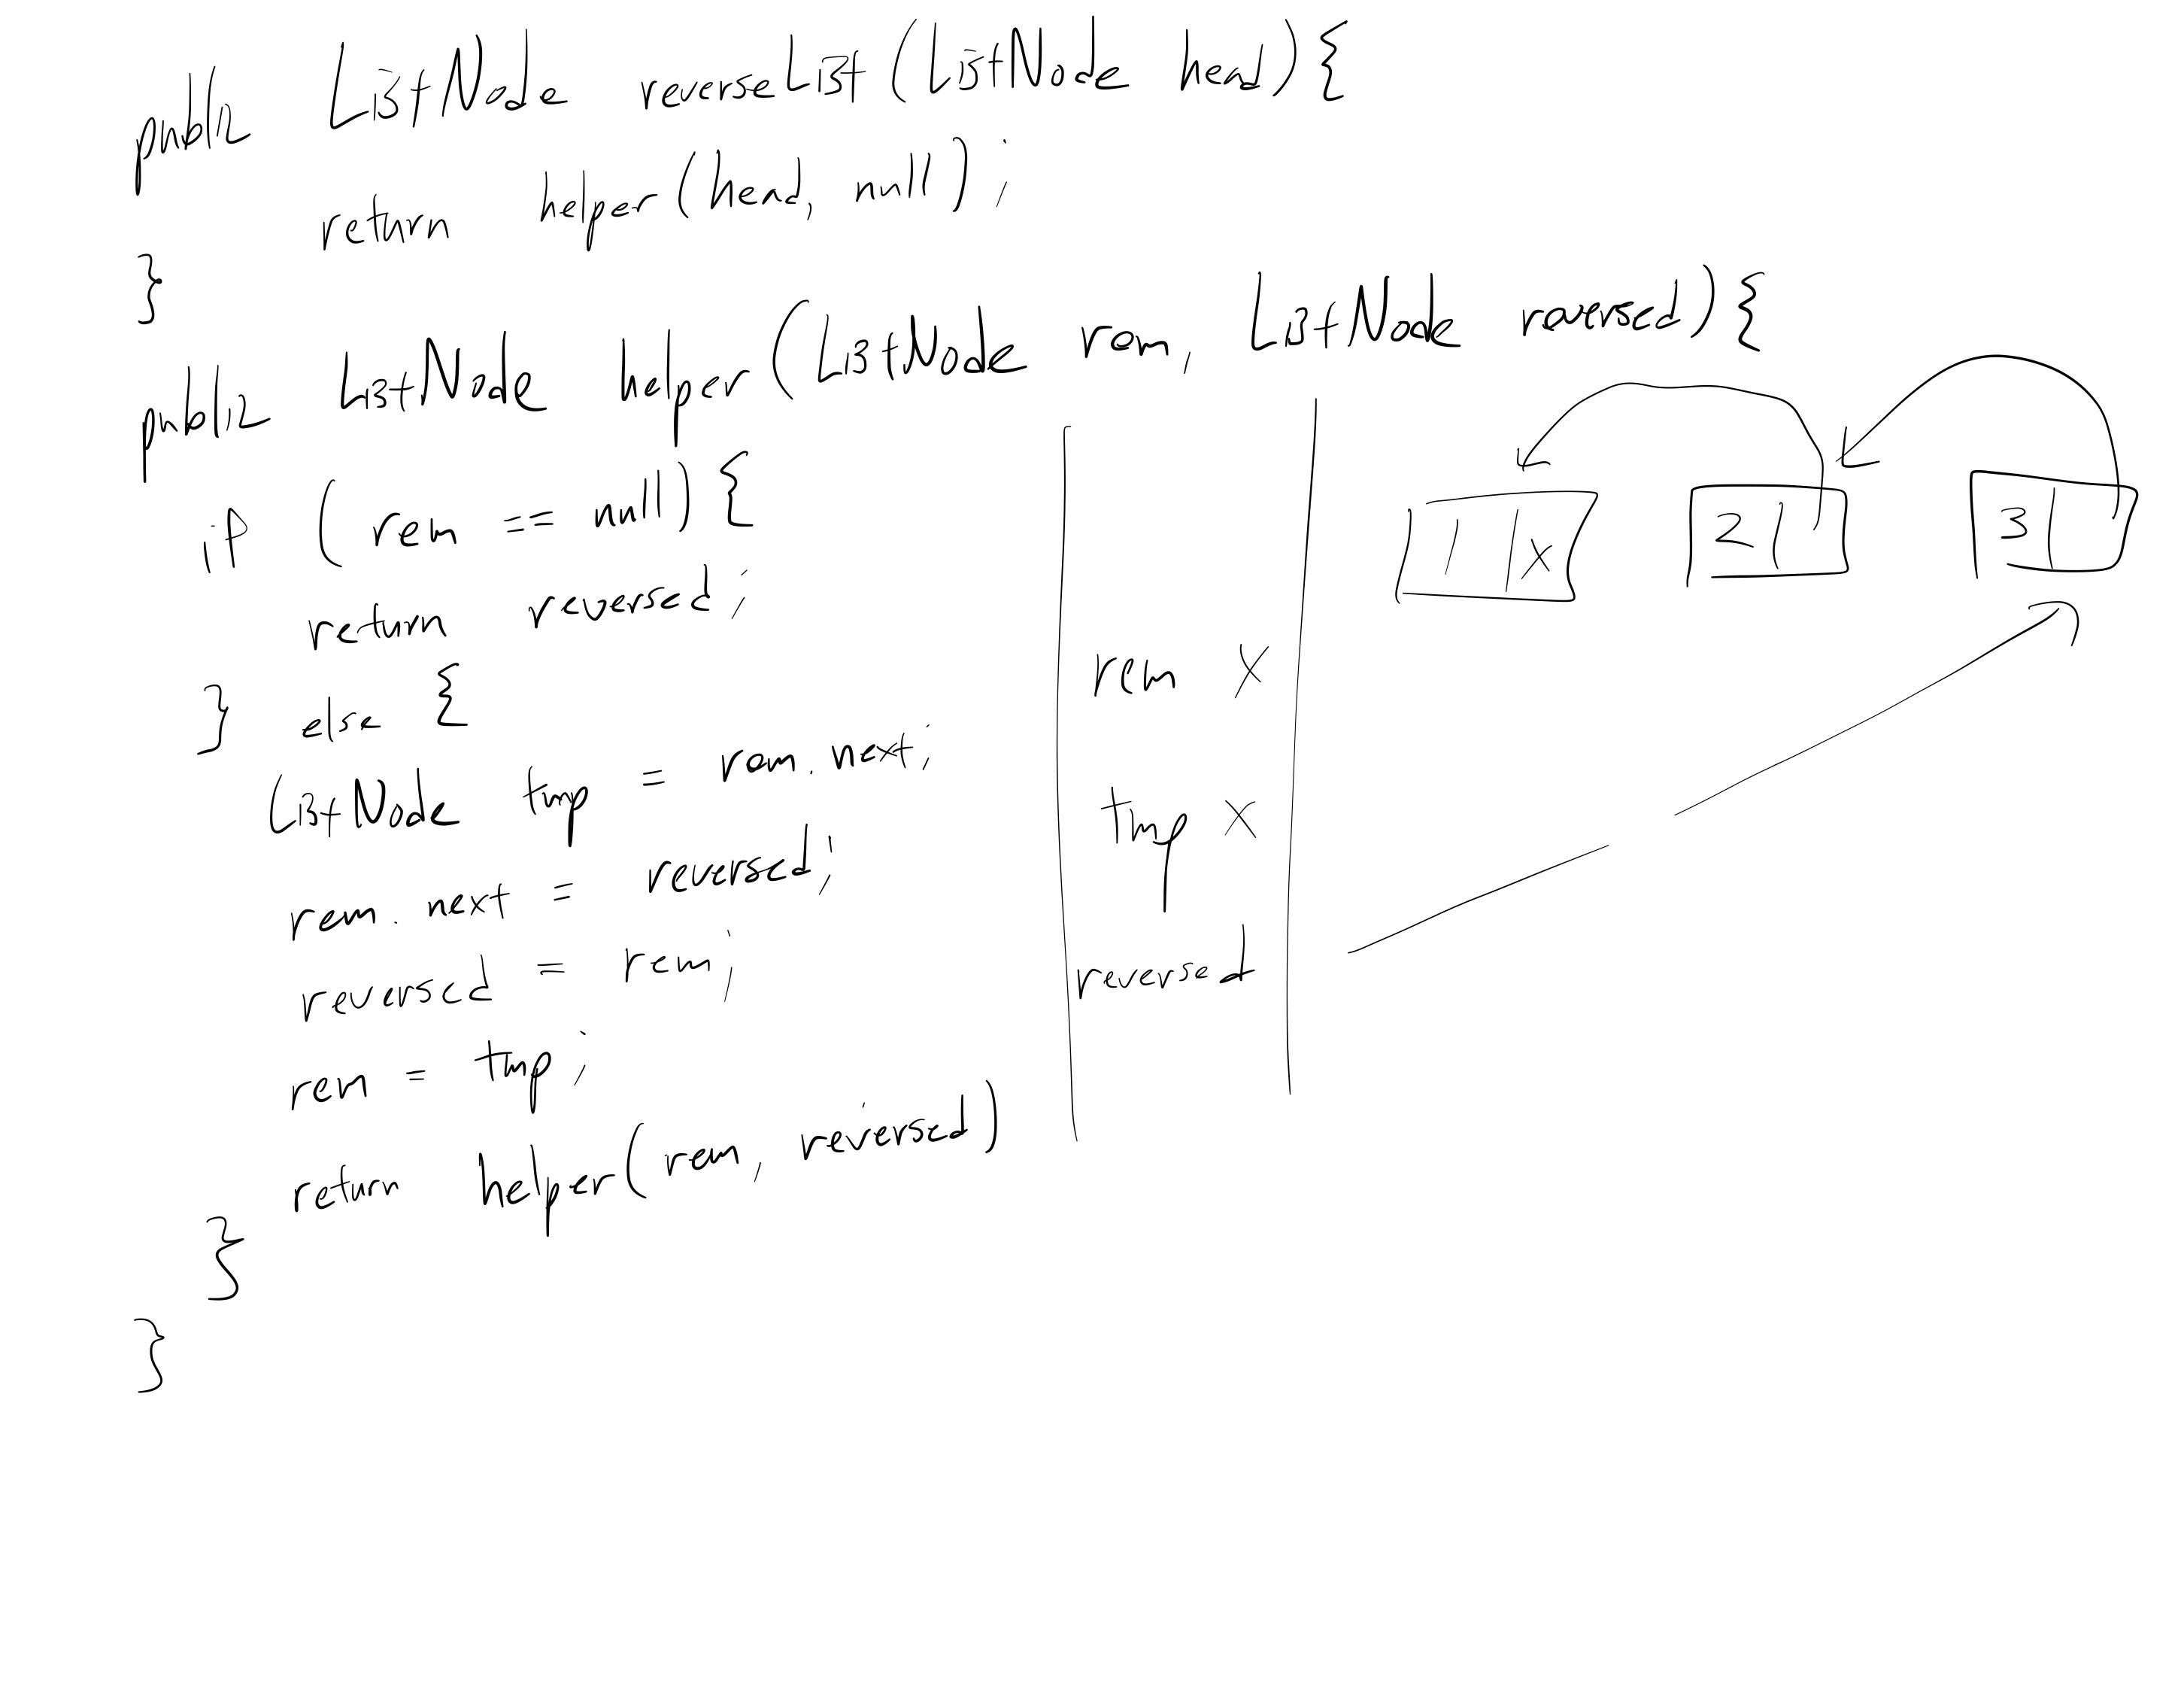 public ListNode reverseList (ListNode head) {
return helper (head, null);
}
public ListNode helper (ListNode rem, ListNode reversed) {
if (rem == null) {
return reversed;
} else {
ListNode tmp = rem.next;
rem.next = reversed;
reversed = rem;
rem = tmp;
return helper(rem, reversed)
}
}
rem X
tmp X
reversed
1 X 2 3